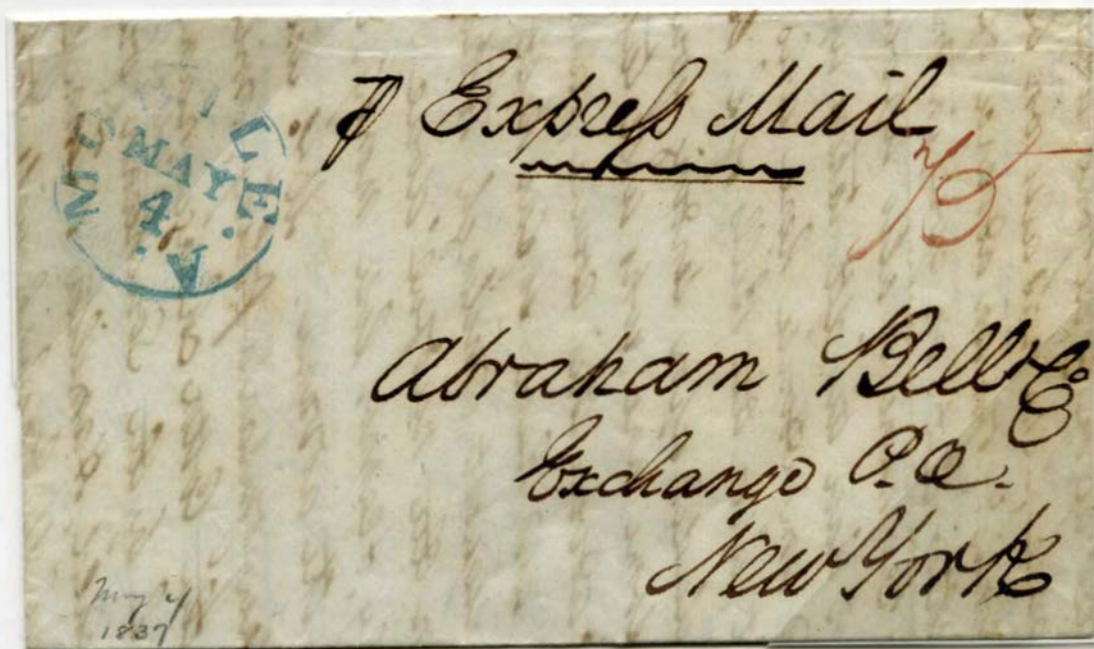 MOBILE. A.
MAY
4
₱ Express Mail
75
Abraham Bell & Co
Exchange P.O.
New York
May 4
1837